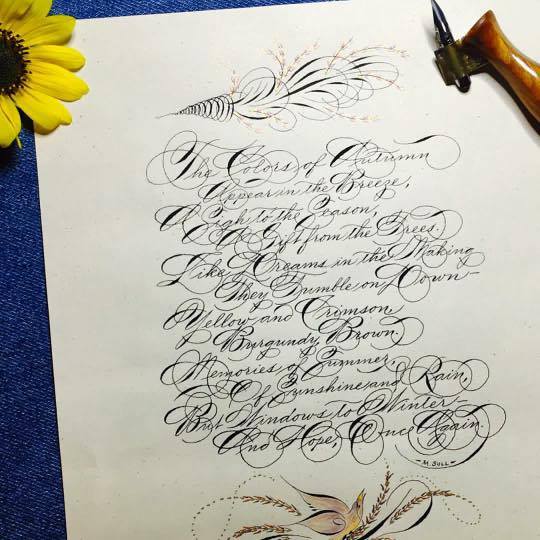 The Colors of Autumn
Appear in the Breeze,
A Sigh to the Season,
A Gift from the Trees.
Like Dreams in the Making
They Tumble on Down—
Yellow and Crimson
Burgundy, Brown.
Memories of Summer,
Of Sunshine and Rain,
But Windows to Winter—
And Hope, Once Again.
—M. SULL—